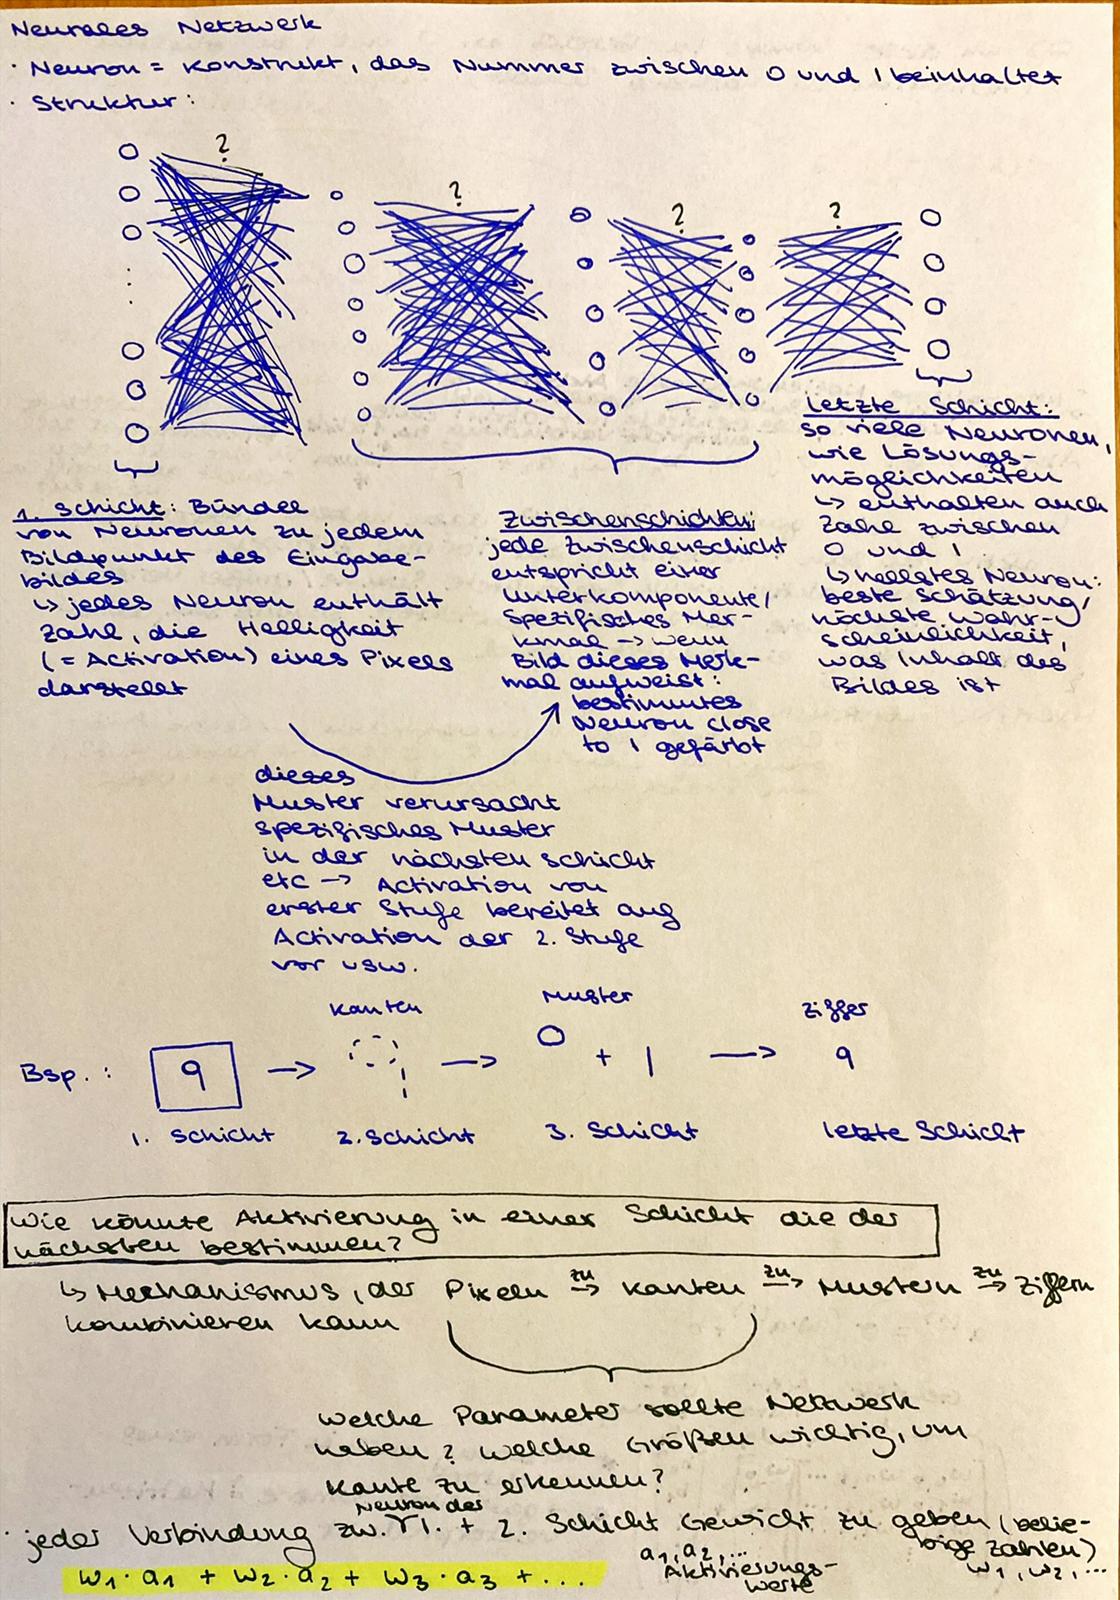 Neurales Netzwerk
· Neuron = Konstrukt, das Nummer zwischen 0 und 1 beinhaltet
· Struktur:
? ? ? ?
1. Schicht: Bündel
von Neuronen zu jedem
Bildpunkt des Eingabe-
bildes
↳ jedes Neuron enthält
Zahl, die Helligkeit
(= Activation) eines Pixels
darstellt
Zwischenschichten:
jede Zwischenschicht
entspricht einer
Unterkomponente/
Spezifisches Mer-
kmal → wenn
Bild dieses Merk-
mal aufweist:
bestimmtes
Neuron close
to 1 gefärbt
letzte Schicht:
so viele Neuronen,
wie Lösungs-
möglichkeiten
↳ enthalten auch
Zahl zwischen
0 und 1
↳ hellstes Neuron:
beste Schätzung/
höchste Wahr-
scheinlichkeit,
was Inhalt des
Bildes ist
dieses
Muster verursacht
spezifisches Muster
in der nächsten Schicht
etc → Activation von
erster Stufe bereitet auf
Activation der 2. Stufe
vor usw.
Kanten Muster Ziffer
Bsp.: 9 → → + | → 9
1. Schicht 2. Schicht 3. Schicht letzte Schicht
Wie könnte Aktivierung in einer Schicht die der
nächsten bestimmen?
↳ Mechanismus, der Pixeln zu → Kanten zu → Mustern zu → Ziffern
kombinieren kann
Welche Parameter sollte Netzwerk
haben? Welche Größen wichtig, um
Kante zu erkennen?
Neuron der
· jeder Verbindung zw. 1. + 2. Schicht Gewicht zu geben (belie-
bige Zahlen)
w1, w2, ...
a1, a2, ...
Aktivierungs-
werte
w1 · a1 + w2 · a2 + w3 · a3 + ...